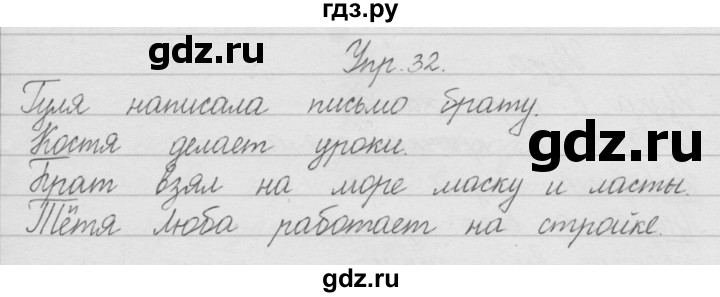 гдз.ру
gdz.ru gdz.ru
Упр. 32.
Гуля написала письмо брату.
Костя делает уроки.
gdz.ru
Брат взял на море маску и ласты.
Тётя Люба работает на стройке.
gdz.ru gdz.ru